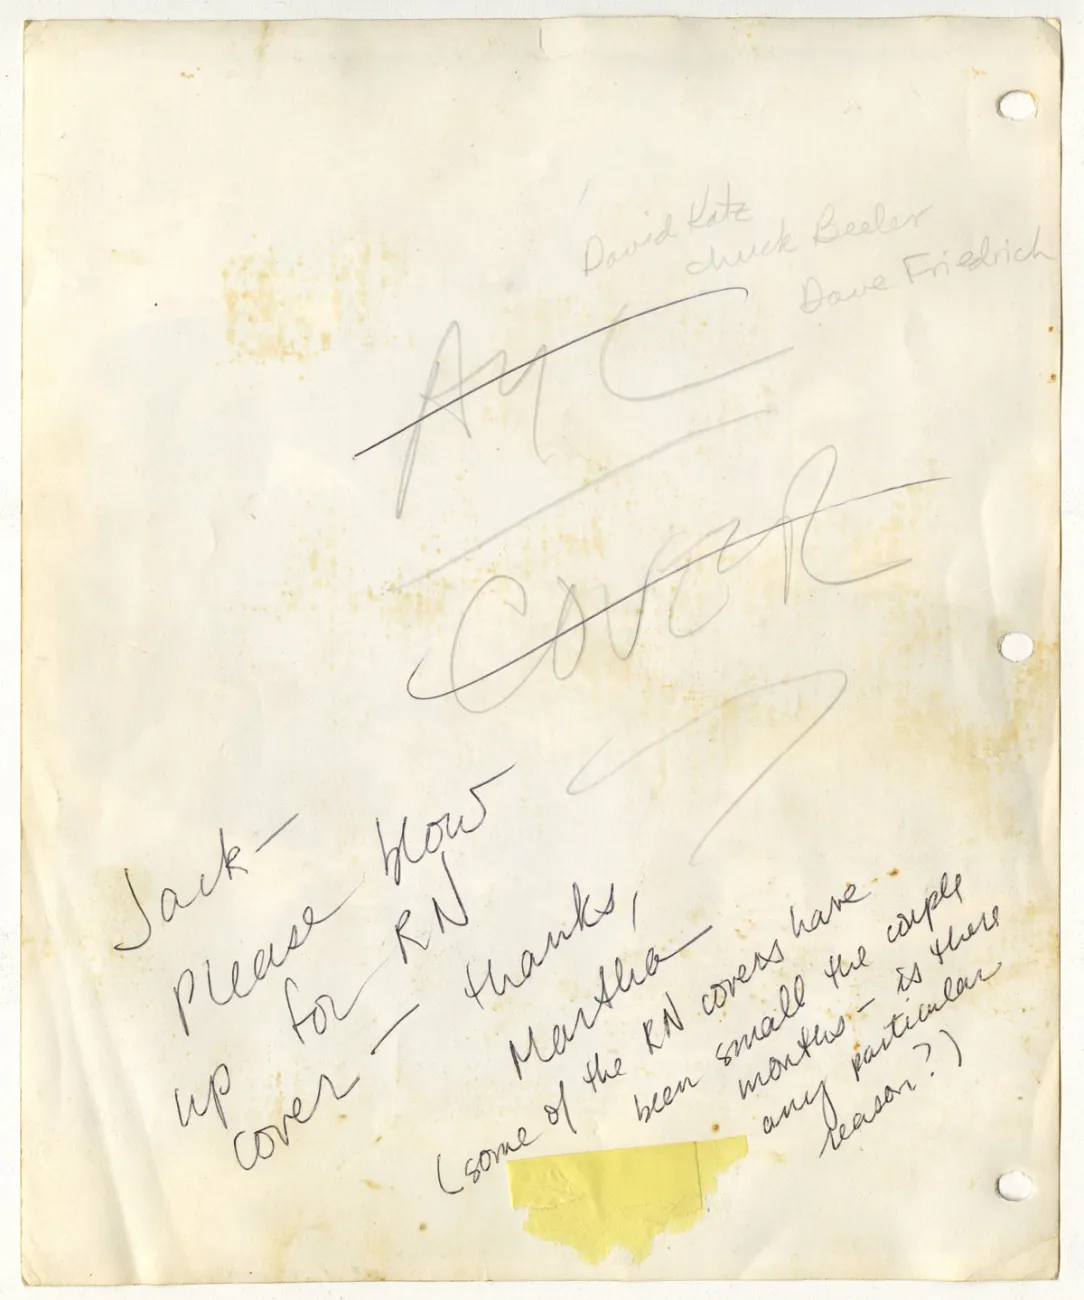 David Katz
Chuck Beeler
Dave Friedrich
AYC
COVER
Jack—
please blow
up for RN
cover — thanks,
Martha
(some of the RN covers have
been small the couple
months — is there
any particular
reason?)